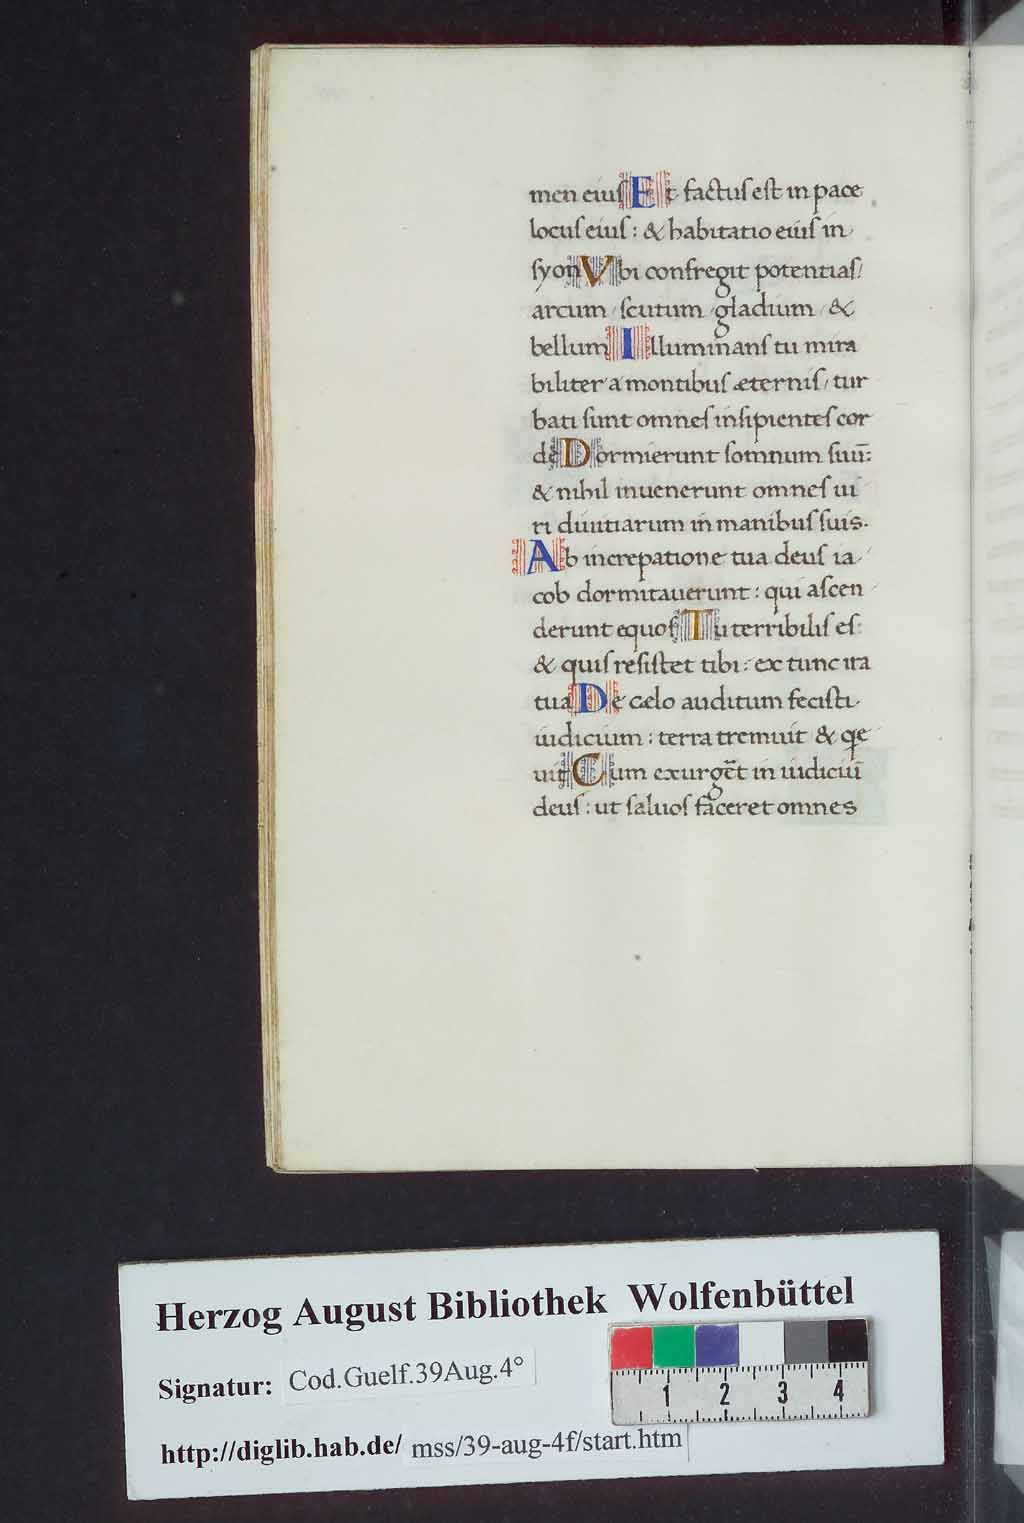 men eiuſ Et factuſ eſt in pace
locuſ eiuſ : & habitatio eiuſ in
ſyon Vbi confregit potentiaſ /
arcum / ſcutum / gladium / &
bellum Illuminanſ tu mira
biliter a montibuſ æterniſ / tur
bati ſunt omneſ inſipienteſ cor
de Dormierunt ſomnum ſuū :
& nihil inuenerunt omneſ ui
ri diuitiarum in manibuſ ſuis.
Ab increpatione tua deuſ ia
cob dormitauerunt : qui aſcen
derunt equoſ Tu terribiliſ eſ :
& quiſ reſiſtet tibi : ex tunc ira
tua De cælo auditum feciſti
iudicium : terra tremuit & qie
uit Cum exurgēt in iudiciū
deuſ : ut ſaluoſ faceret omnes
Herzog August Bibliothek Wolfenbüttel
Signatur: Cod.Guelf.39Aug.4°
http://diglib.hab.de/ mss/39-aug-4f/start.htm
1 2 3 4